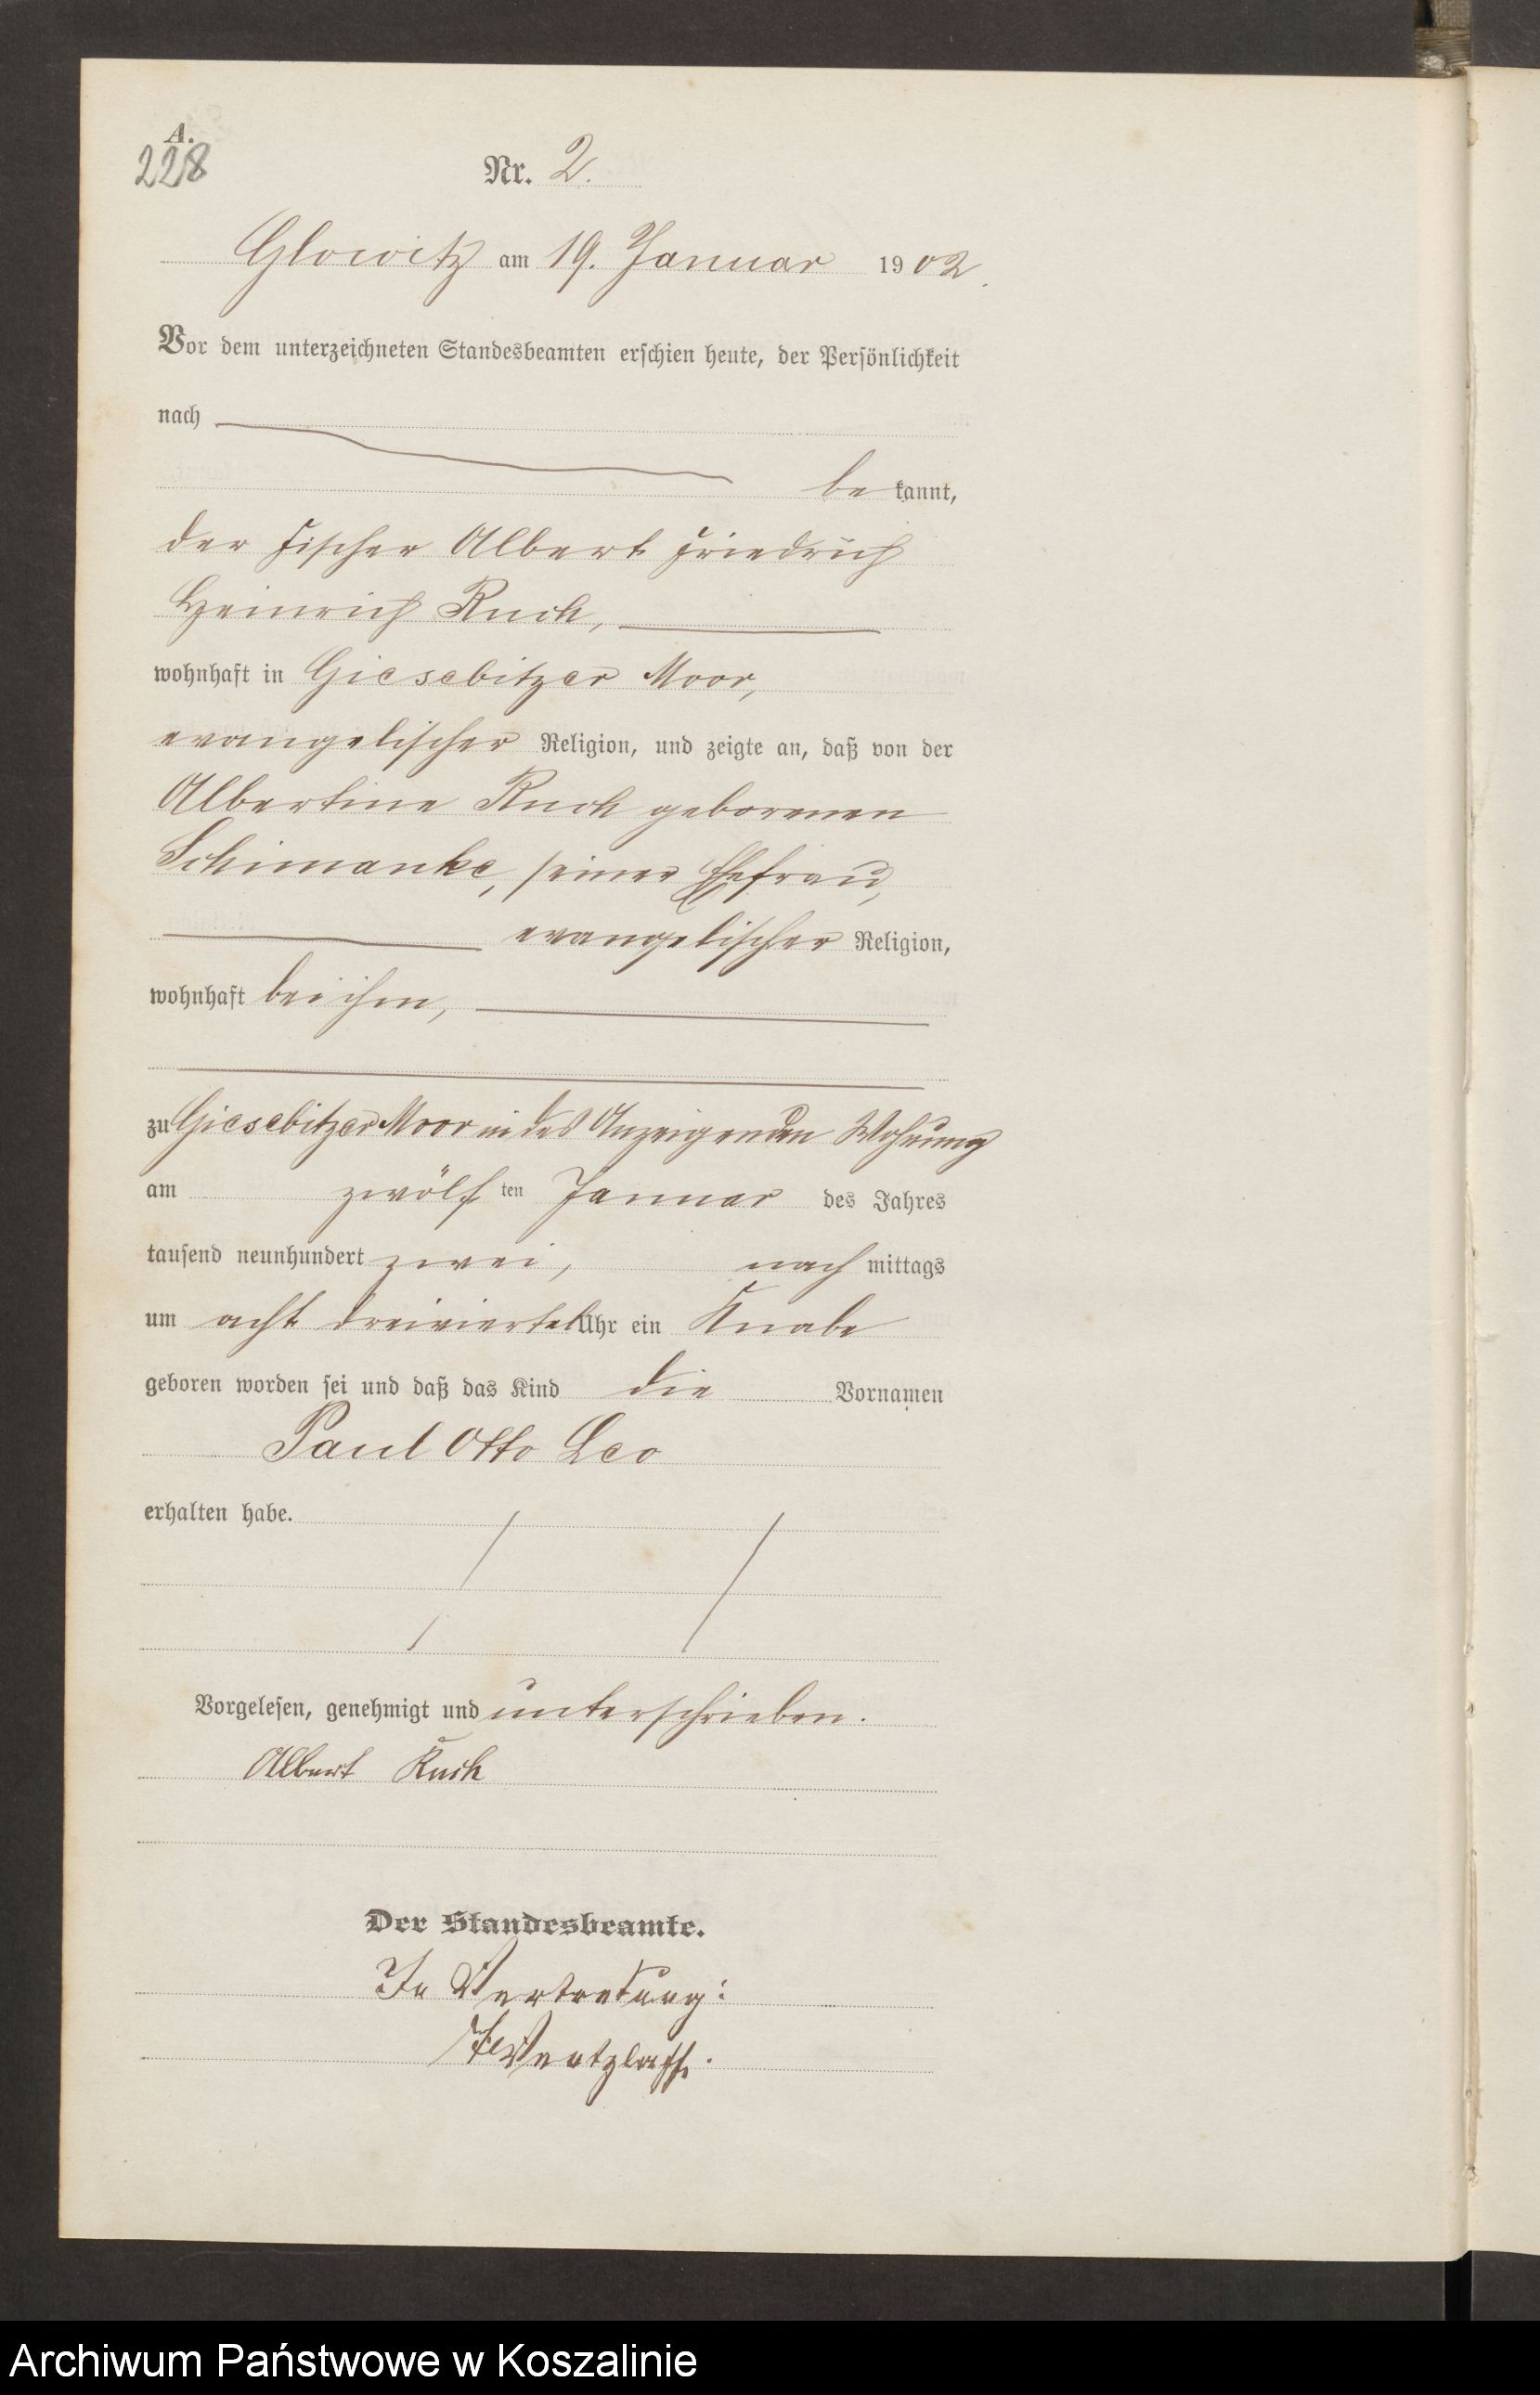 A.
228
Nr. 2.
Glowitz am 19. Januar 1902.
Vor dem unterzeichneten Standesbeamten erschien heute, der Persönlichkeit
nach
be kannt,
der Fischer Albert Friedrich
Heinrich Kuch,
wohnhaft in Giesebitzer Moor,
evangelischer Religion, und zeigte an, daß von der
Albertine Kuch geborenen
Schimanke, seiner Ehefrau,
evangelischer Religion,
wohnhaft bei ihm,
zu Giesebitzer Moor in des Anzeigenden Wohnung
am zwölf ten Januar des Jahres
tausend neunhundert zwei, nach mittags
um acht dreiviertel Uhr ein Knabe
geboren worden sei und daß das Kind die Vornamen
Paul Otto Leo
erhalten habe.
Vorgelesen, genehmigt und unterschrieben.
Albert Kuch
Der Standesbeamte.
In Vertretung:
Wentzlaff.
Archiwum Państwowe w Koszalinie